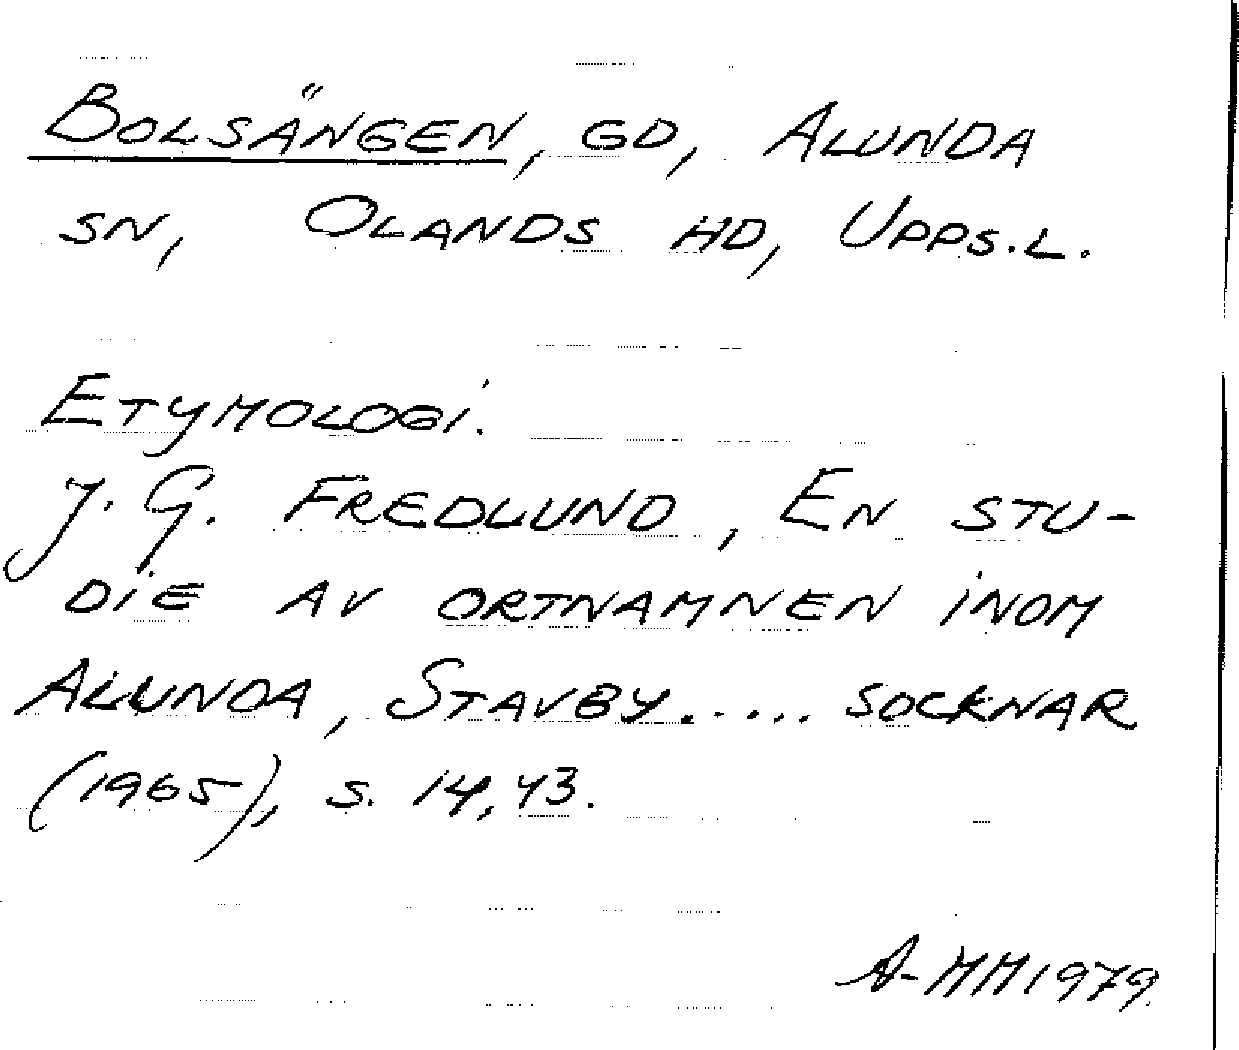 BOLSÄNGEN, GD, ALUNDA
SN, OLANDS HD, UPPS.L.
ETYMOLOGI.
J. G. FREDLUND, EN STU-
DIE AV ORTNAMNEN INOM
ALUNDA, STAVBY..... SOCKNAR
(1965), S. 14, 43.
A-MM 1979